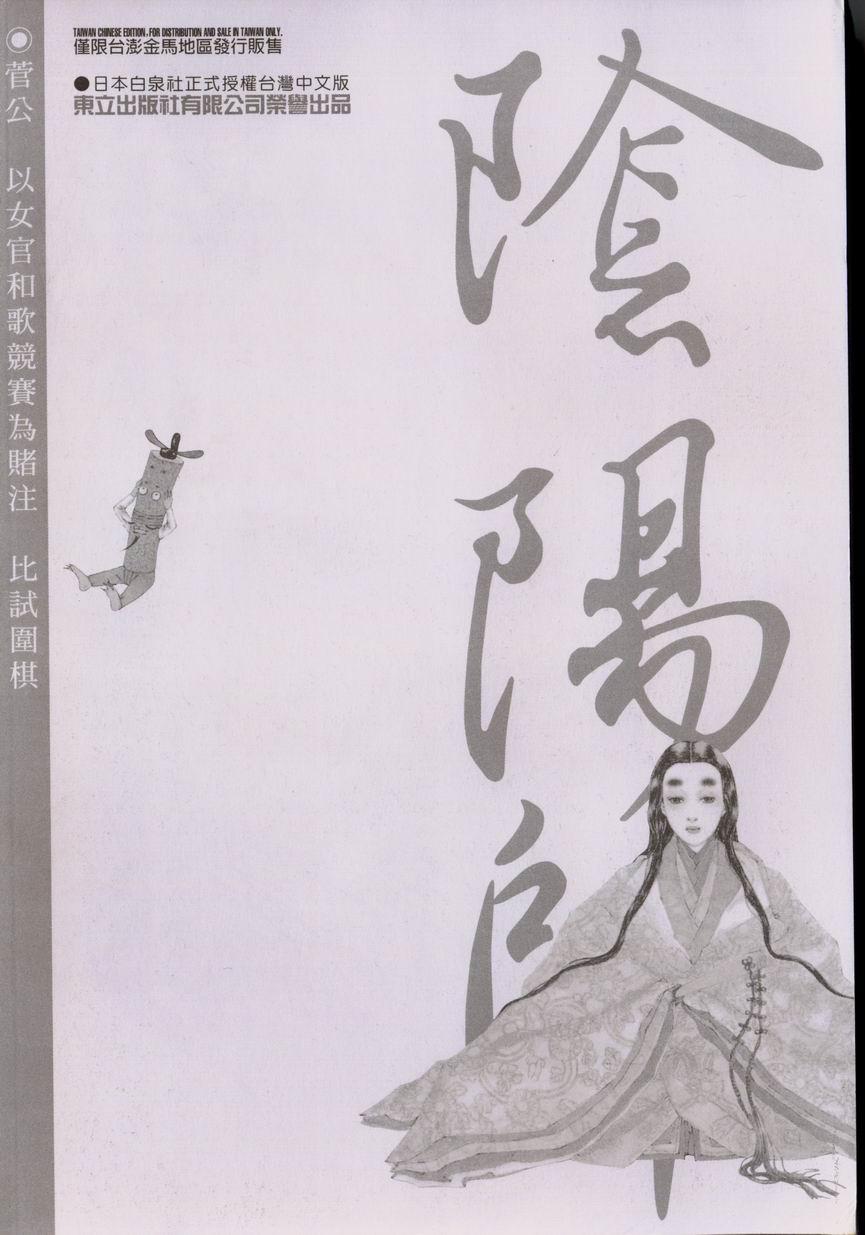 TAIWAN CHINESE EDITION. FOR DISTRIBUTION AND SALE IN TAIWAN ONLY.
僅限台澎金馬地區發行販售
●日本白泉社正式授權台灣中文版
東立出版社有限公司榮譽出品
陰陽師
◉菅公 以女官和歌競賽為賭注 比試圍棋